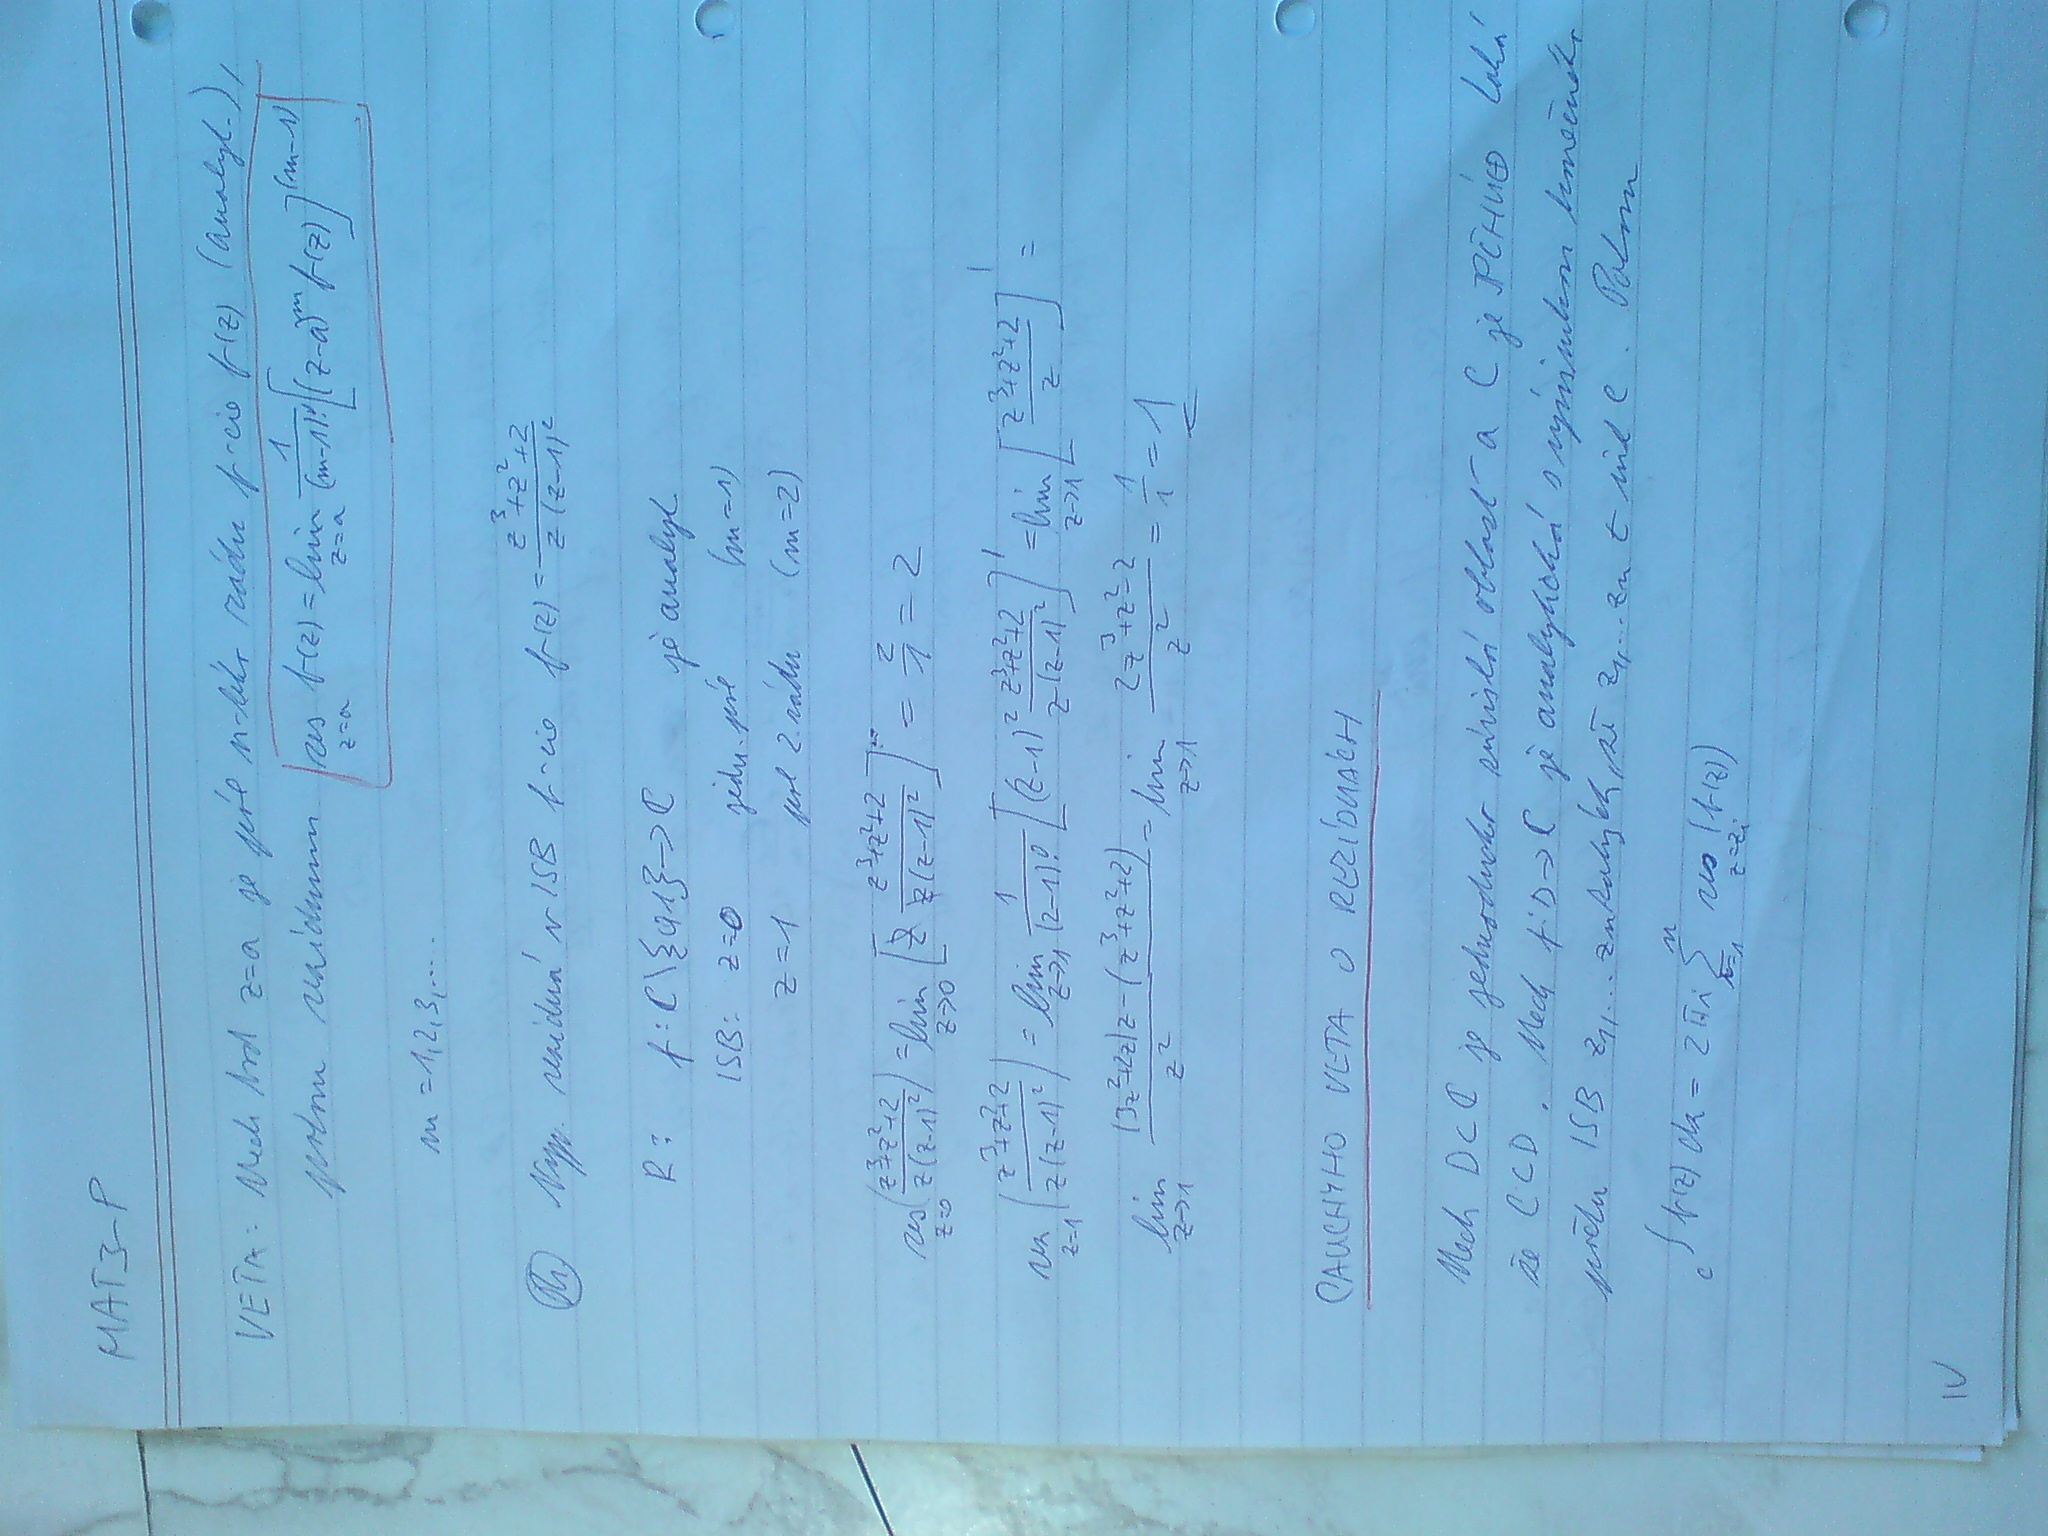 MAT3-P
VETA: Nech bod z=a je pól n-tého rádu f-cie f(z) (analyt.),
potom reziduum res_{z=a} f(z) = lim_{z=a} 1/(m-1)! [(z-a)^m f(z)]^{(m-1)}
m = 1,2,3,...
Pr Vyp. reziduá v ISB f-cie f(z) = (z^3+z^2+2)/(z(z-1)^2)
R: f: C\{0,1}→C je analyt
ISB: z=0 jedn. pól (m=1)
z=1 pól 2. rádu (m=2)
res_{z=0} ((z^3+z^2+2)/(z(z-1)^2)) = lim_{z→0} [z (z^3+z^2+2)/(z(z-1)^2)] = 2/1 = 2
res_{z=1} ((z^3+z^2+2)/(z(z-1)^2)) = lim_{z→1} 1/(2-1)! [(z-1)^2 (z^3+z^2+2)/(z(z-1)^2)]' = lim_{z→1} [(z^3+z^2+2)/z]' =
lim_{z→1} ((3z^2+2z)z-(z^3+z^2+2))/z^2 = lim_{z→1} (2z^3+z^2-2)/z^2 = 1/1 = 1
CAUCHYHO VETA O REZÍDUÁCH
Nech D⊂C je jednoducho súvislá oblasť a C je taká
že C⊂D. Nech f:D→C je analytická s výnimkom konečného
počtu ISB z_1,... z_n takých, že z_1,... z_n ∈ int C. Potom
_C∫ f(z) dz = 2πi ∑_{i=1}^{n} res_{z=z_i} (f(z))
IV